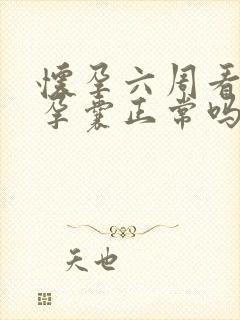 怀孕六周看
孕囊正常吗
天也